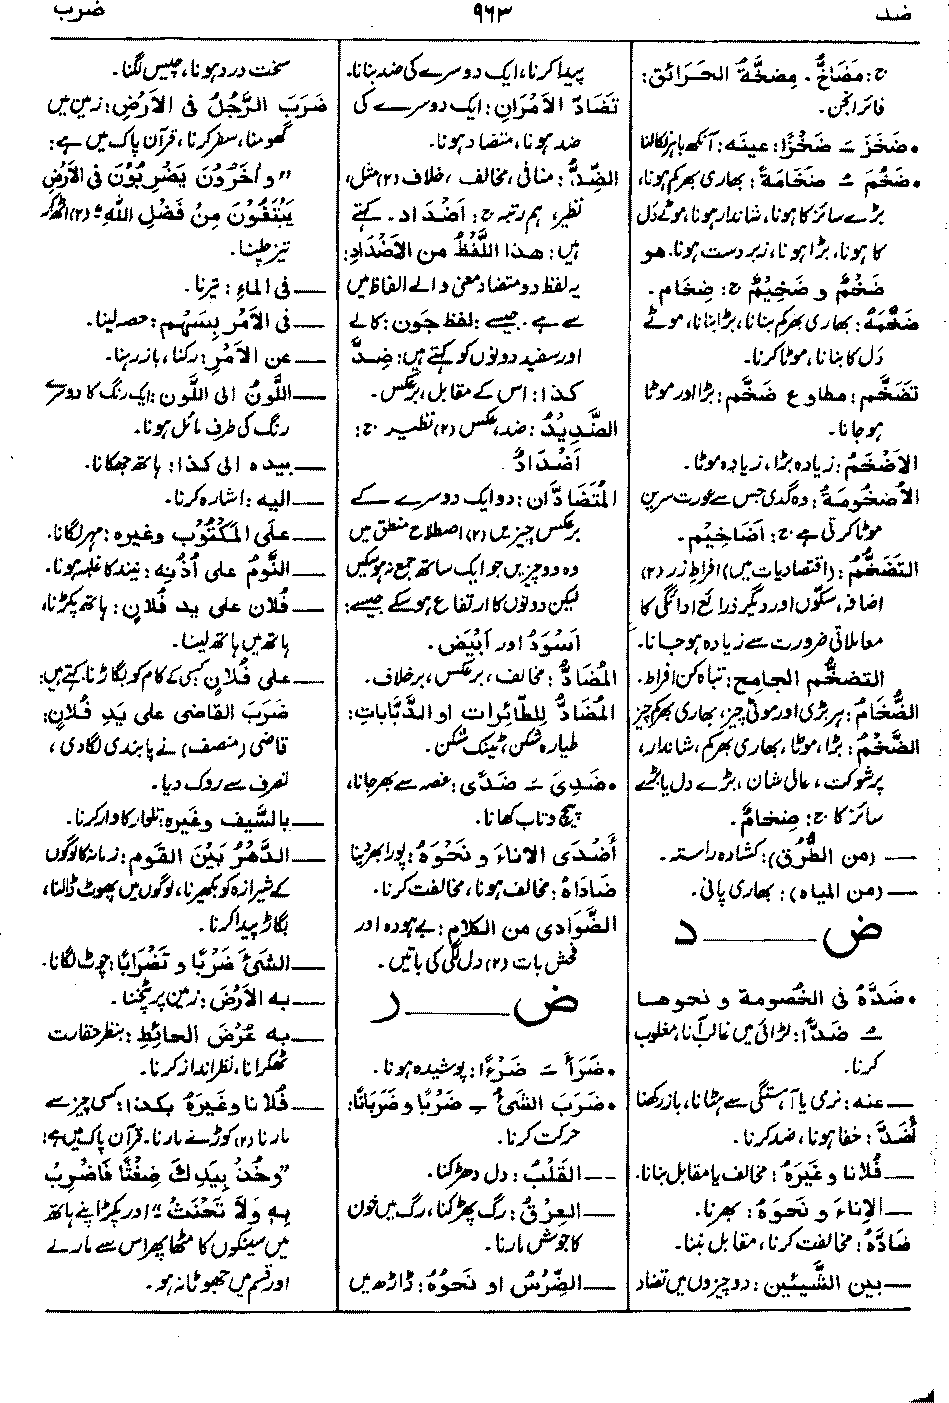 ضد
۹۶۳
ضرب
ج: مَضَاخٌّ۔ مِضخَّةُ الحَرائق:
فائر انجن۔
• ضَخَزَ ــَـ ضَخْزًا: عینہ: آنکھ باہر نکالنا
• ضَخُمَ ــُـ ضَخَامَةً: بھاری بھرکم ہونا،
بڑے سائز کا ہونا، شاندار ہونا، موٹے دَل
کا ہونا، بڑا ہونا، زبردست ہونا۔ هو
ضَخْمٌ و ضَخِيْمٌ ج: ضِخام۔
ضَخَّمَهُ: بھاری بھرکم بنانا، بڑا بنانا، موٹے
دَل کا بنانا، موٹا کرنا۔
تَضَخَّمَ: مطاوع ضَخَّم: بڑا اور موٹا
ہو جانا۔
الأَضْخَمُ: زیادہ بڑا، زیادہ موٹا۔
الأُضْخُومَةُ: وہ گدی جس سے عورت سرین
موٹا کرتی ہے ج: أَضَاخِيْم۔
التَضَخُّمُ: (اقتصادیات میں) افراطِ زر (۲)
اضافہ، سکّوں اور دیگر ذرائع ادائیگی کا
معاملاتی ضرورت سے زیادہ ہو جانا۔
التضخّم الجامح: تباہ کن افراط۔
الضُّخَامُ: ہر بڑی اور موٹی چیز، بھاری بھرکم چیز
الضَّخْمُ: بڑا، موٹا، بھاری بھرکم، شاندار،
پرشوکت، عالی شان، بڑے دل یا بڑے
سائز کا ج: ضِخامٌ۔
— (من الطُّرُق): کشادہ راستہ۔
— (من المیاہ): بھاری پانی۔
ض ــــــ د
• ضَدَّهُ فى الخُصومة و نحوها
ــُـ ضَدًّا: لڑائی میں غالب آنا، مغلوب
کرنا۔
— عنه: نرمی یا آہستگی سے ہٹانا، باز رکھنا
أَضَدَّ: خفا ہونا، ضد کرنا۔
— فُلانا وغَيرَهُ: مخالف یا مقابل بنانا۔
— الإناءَ و نَحوَهُ: بھرنا۔
ضَادَّهُ: مخالفت کرنا، مقابل بننا۔
— بين الشَّيئين: دو چیزوں میں تضاد
پیدا کرنا، ایک دوسرے کی ضد بنانا۔
تَضَادَّ الأَمْرَانِ: ایک دوسرے کی
ضد ہونا، متضاد ہونا۔
الضِّدُّ: منافی، مخالف، خلاف (۲) مثل،
نظیر، ہم رتبہ ج: أَضْدَاد۔ کہتے
ہیں: هذا اللَّفْظُ من الأَضْدَادِ:
یہ لفظ دو متضاد معنی والے الفاظ میں
سے ہے۔ جیسے: لفظ جَون: کالے
اور سفید دونوں کو کہتے ہیں: ضِدَّ
كذا: اس کے مقابل، برعکس۔
الضَّدِيْدُ: ضد، عکس (۲) نظیر ج:
أَضْدَادٌ
المُتَضَادَّان: دو ایک دوسرے کے
برعکس چیزیں (۲) اصطلاح منطق میں
وہ دو چیزیں جو ایک ساتھ جمع نہ ہو سکیں
لیکن دونوں کا ارتفاع ہو سکے جیسے:
أَسْوَدُ اور أَبْيَض۔
المُضَادُّ: مخالف، برعکس، برخلاف۔
المُضَادُّ لِلطَّائِرات او الدَّبَّابات:
طیارہ شکن، ٹینک شکن۔
• ضَدِیَ ــَـ ضَدًى: غصہ سے بھر جانا،
پیچ و تاب کھانا۔
أَضْدَى الاناءَ و نَحْوَهُ: پورا بھر دینا
ضَادَاهُ: مخالف ہونا، مخالفت کرنا۔
الضَّوَادي من الكلام: بے ہودہ اور
فحش بات (۲) دل لگی کی باتیں۔
ض ــــــ ر
• ضَرَأَ ــَـ ضَرْءًا: پوشیدہ ہونا۔
• ضَرَبَ الشئُ ــِـ ضَرْبًا و ضَرَبَانًا:
حرکت کرنا۔
— القَلْبُ: دل دھڑکنا۔
— العِرْقُ: رگ پھڑکنا، رگ میں خون
کا جوش مارنا۔
— الضِّرْسُ او نَحوُهُ: ڈاڑھ میں
سخت درد ہونا، چیس لگنا۔
ضَرَبَ الرَّجُلُ فى الأَرْضِ: زمین میں
گھومنا، سفر کرنا، قرآن پاک میں ہے:
”وآخَرُونَ يَضْرِبُوْنَ فى الأَرْضِ
يَبْتَغُونَ مِنْ فَضْلِ اللهِ“ (۲) اٹھ کر
تیز چلنا۔
— فى الماءِ: تیرنا۔
— فى الأَمْرِ بِسَهْمٍ: حصہ لینا۔
— عن الأَمْرِ: رکنا، باز رہنا۔
— اللَّونُ الى اللَّون: ایک رنگ کا دوسرے
رنگ کی طرف مائل ہونا۔
— بيده الى كذا: ہاتھ جھکانا۔
— اليه: اشارہ کرنا۔
— عَلَى المَكْتُوْبِ وغيرِه: مہر لگانا۔
— النَّوْمُ على أُذُنِه: نیند کا غلبہ ہونا۔
— فُلان على يد فُلانٍ: ہاتھ پکڑنا،
ہاتھ میں ہاتھ لینا۔
— على فُلانٍ: کسی کے کام کو بگاڑنا، کہتے ہیں:
ضَرَبَ القاضى على يَدِ فُلانٍ:
قاضی (منصف) نے پابندی لگا دی،
تصرف سے روک دیا۔
— بالسَّيف وغيره: تلوار کا وار کرنا۔
— الدَّهْرُ بَيْنَ القَوم: زمانہ کا لوگوں
کے شیرازہ کو بکھیرنا، لوگوں میں پھوٹ ڈالنا،
بگاڑ پیدا کرنا۔
— الشئَ ضَرْبًا و تَضْرَابًا: چوٹ لگانا۔
— به الأَرْضَ: زمین پر پٹخنا۔
— به عُرْضَ الحائِطِ: بنظر حقارت
ٹھکرانا، نظر انداز کرنا۔
— فُلانا وغَيرَهُ بكذا: کسی چیز سے
مارنا (۲) کوڑے مارنا۔ قرآن پاک میں ہے:
”وخُذْ بِيَدِكَ ضِغْثًا فَاضْرِبْ
بِهِ وَلاَ تَحْنَثْ“ اور پکڑ اپنے ہاتھ
میں سینکوں کا مٹھا پھر اس سے مار لے
اور قسم میں جھوٹا نہ ہو۔